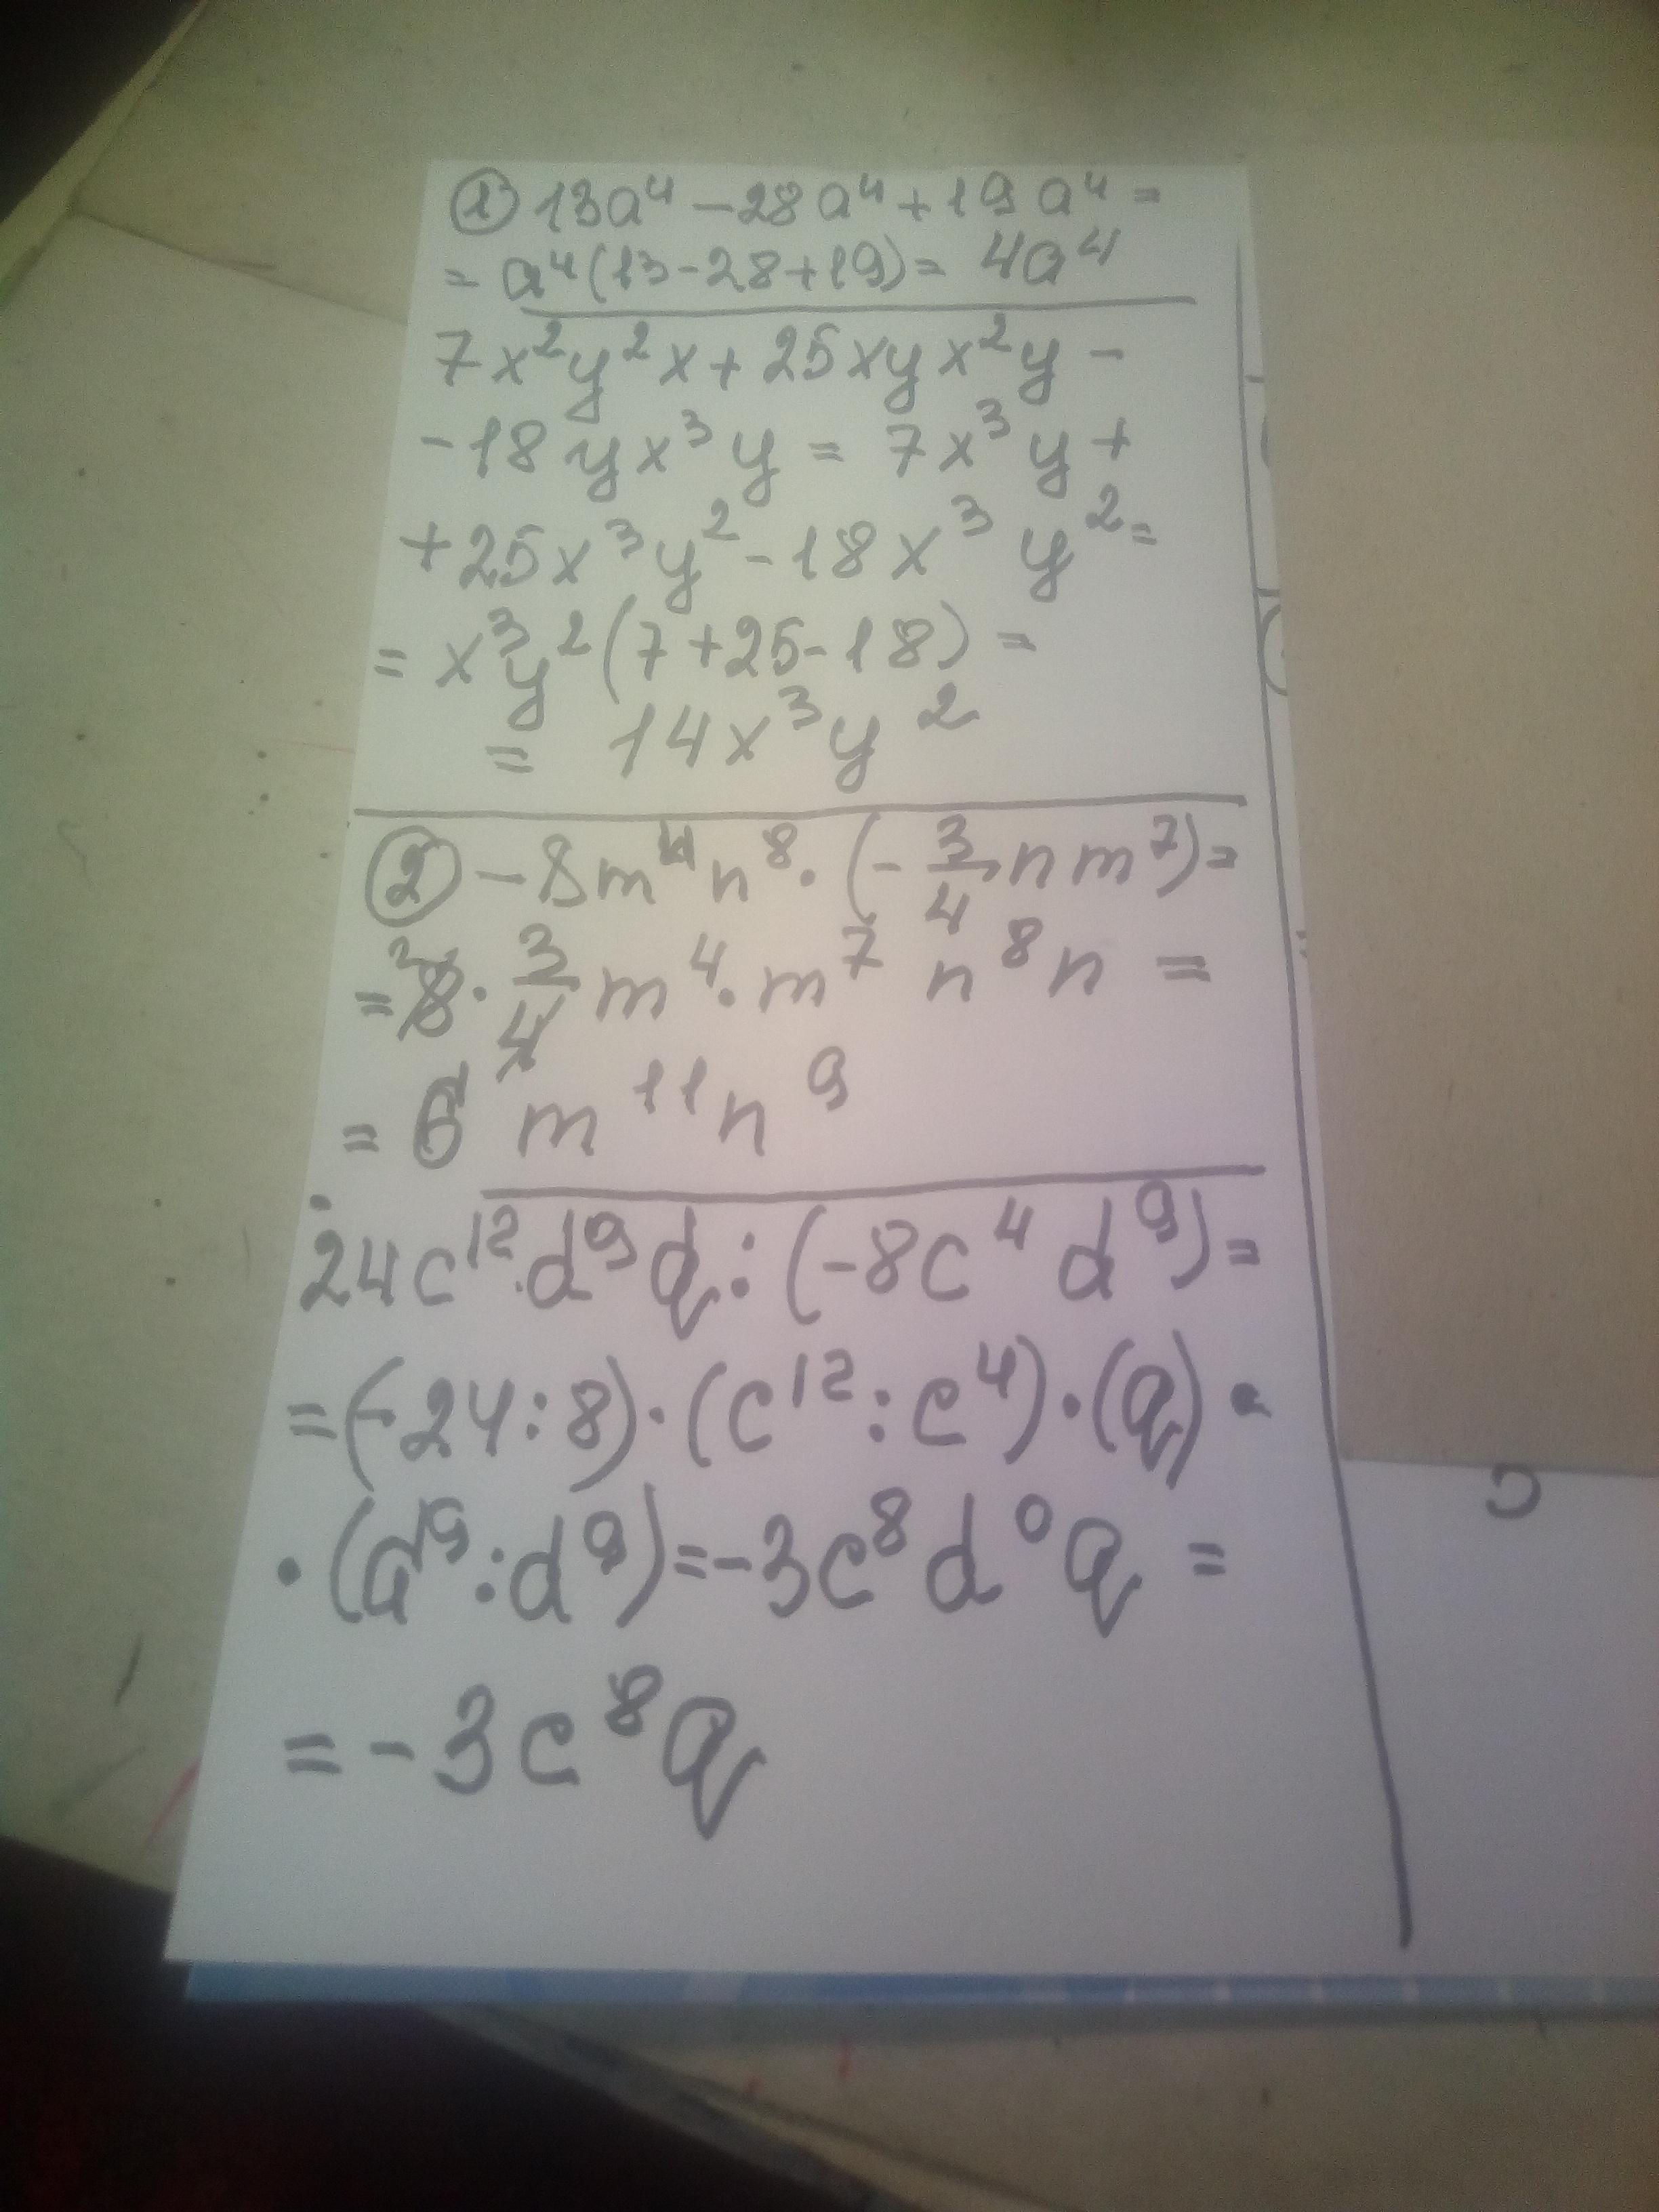 ① 13a⁴ - 28a⁴ + 19a⁴ =
= a⁴(13-28+19) = 4a⁴
7x²y²x + 25xyx²y -
- 18yx³y = 7x³y +
+ 25x³y² - 18x³y² =
= x³y²(7+25-18) =
= 14x³y²
② - 8m⁴n⁸ · (- 3/4 nm⁷) =
= 8² · 3/4 m⁴ · m⁷ n⁸n =
= 6 m¹¹n⁹
24c¹² · d⁹q : (-8c⁴d⁹) =
= (-24:8) · (c¹²:c⁴) · (q) ·
· (d⁹:d⁹) = -3c⁸d⁰q =
= -3c⁸q